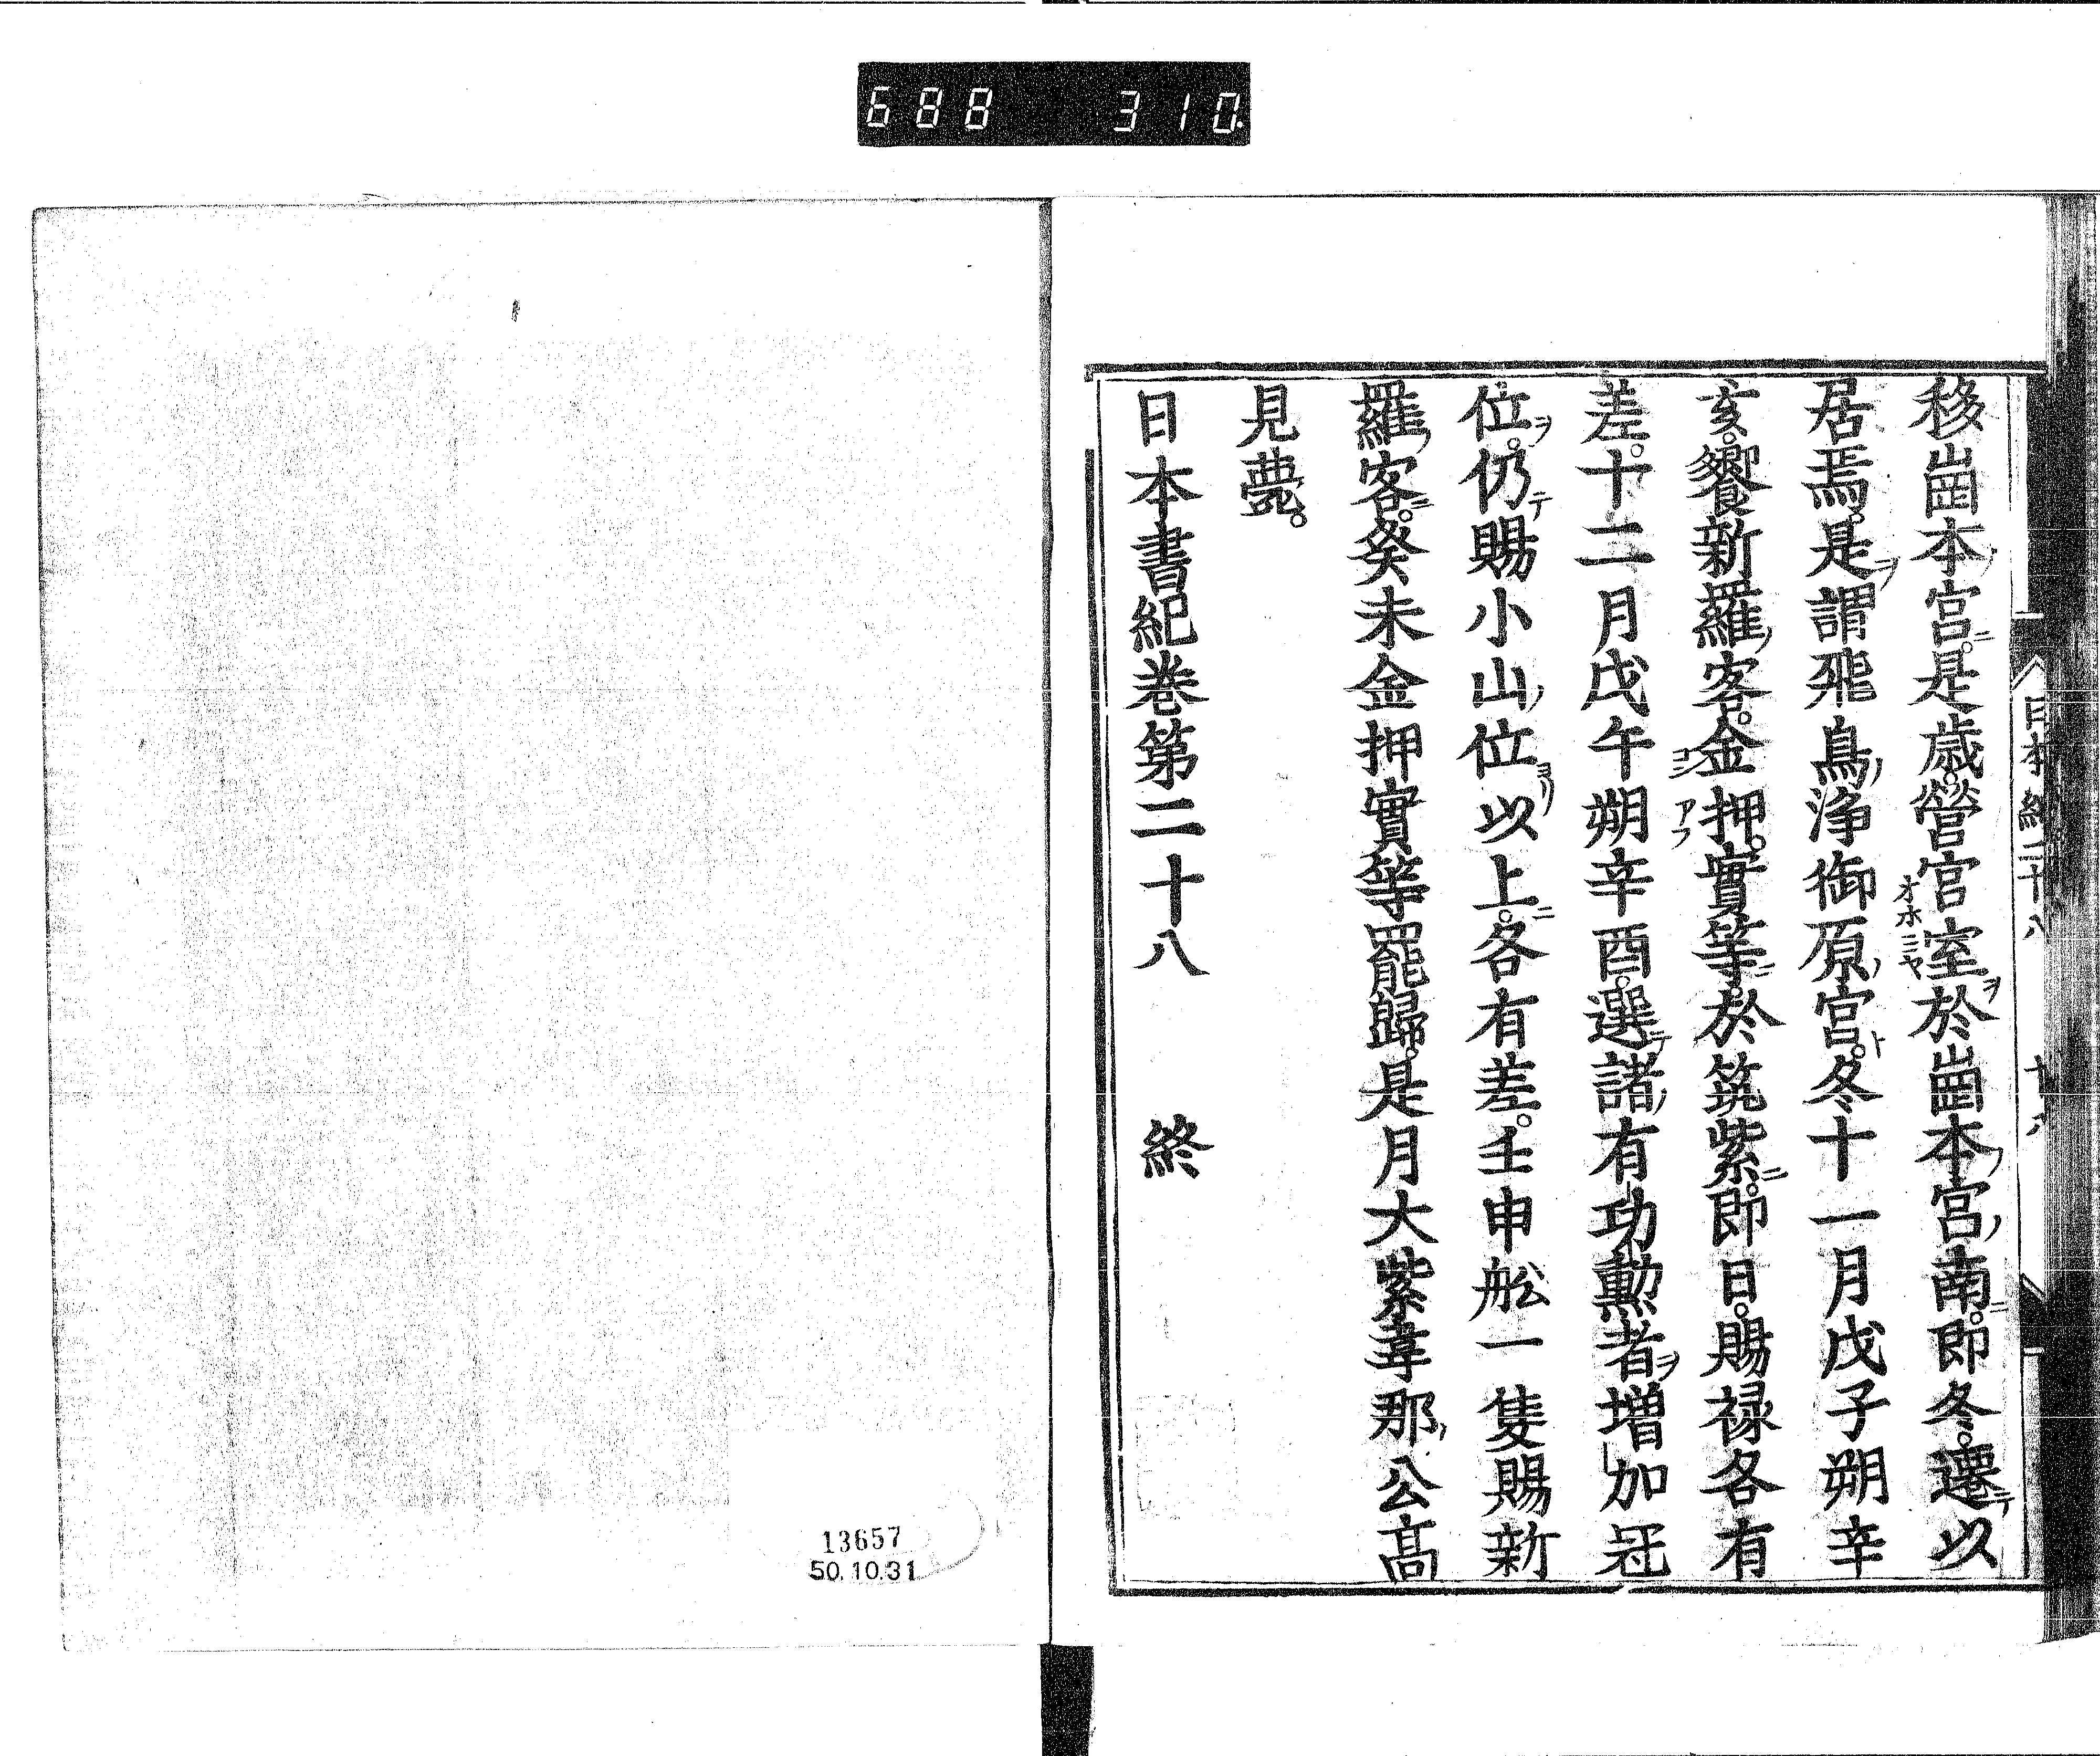 688 310.
移崗本宮是歳營宮室於崗本宮南即冬遷以
居焉是謂飛鳥浄御原宮冬十一月戊子朔辛
亥饗新羅客金押實等於筑紫即日賜禄各有
差十二月戊午朔辛酉選諸有功勲者増加冠
位仍賜小山位以上各有差壬申舩一隻賜新
羅客癸未金押實等罷歸是月大紫韋那公髙
見薨
日本書紀巻第二十八 終
13657
50.10.31